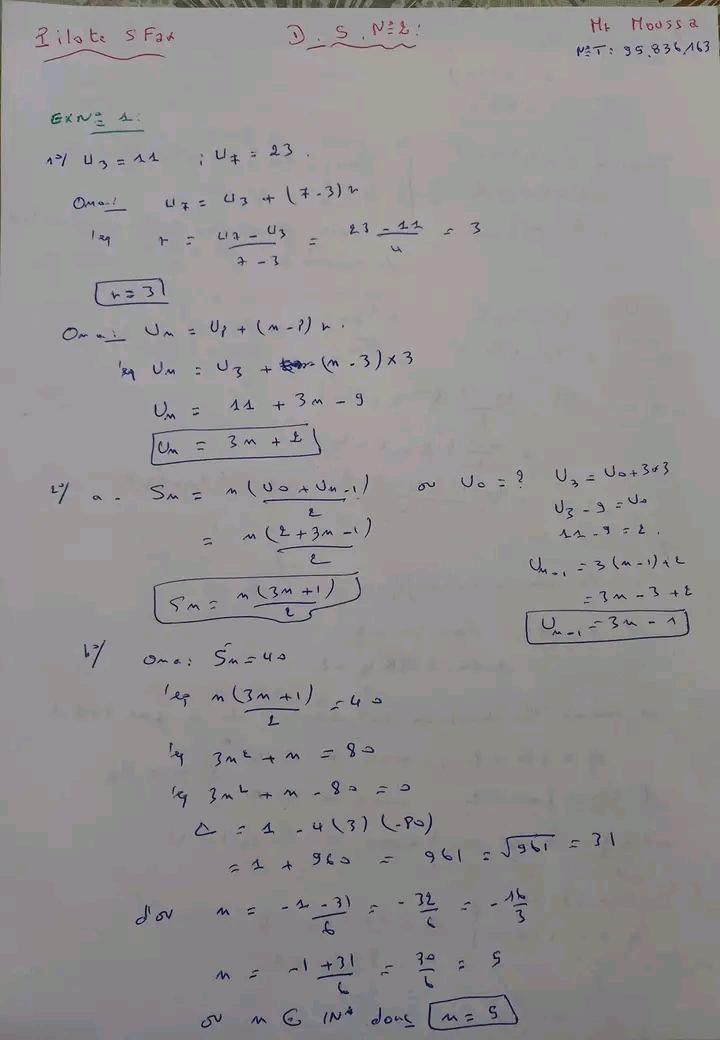 Pilote SFax
D.S.N°2:
Mr Moussa
N°T: 95.836,163
EXN° 1:
1°/ U3 = 11 ; U7 = 23.
On a: U7 = U3 + (7-3)r
r = (U7 - U3)/(7 - 3) = (23 - 11)/4 = 3
r = 3
On a: Un = Up + (n-p)r.
Un = U3 + (n-3)×3
Un = 11 + 3n - 9
Un = 3n + 2
2°/ a - Sn = n(U0 + Un-1)/2
= n(2 + 3n - 1)/2
Sn = n(3n+1)/2
or U0 = ? U3 = U0 + 3×3
U3 - 9 = U0
11 - 9 = 2.
Un-1 = 3(n-1)+2
= 3n - 3 + 2
Un-1 = 3n - 1
b°/ On a: Sn = 40
n(3n+1)/2 = 40
3n² + n = 80
3n² + n - 80 = 0
Δ = 1 - 4(3)(-80)
= 1 + 960 = 961 = √961 = 31
d'où n = (-1 - 31)/6 = -32/6 = -16/3
n = (-1 + 31)/6 = 30/6 = 5
or n ∈ IN* donc n = 5